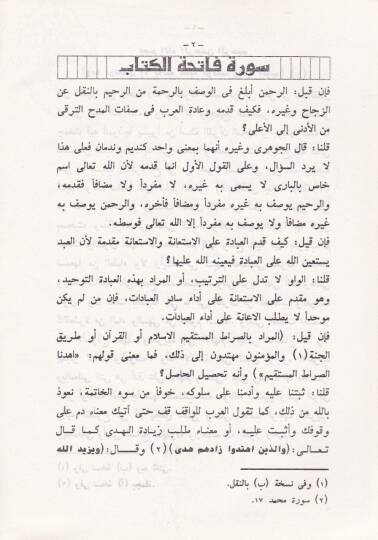 - ٢ -
سورة فاتحة الكتاب
فإن قيل: الرحمن أبلغ فى الوصف بالرحمة من الرحيم بالنقل عن
الزجاج وغيره، فكيف قدمه وعادة العرب فى صفات المدح الترقى
من الأدنى إلى الأعلى؟
قلنا: قال الجوهرى وغيره أنهما بمعنى واحد كنديم وندمان فعلى هذا
لا يرد السؤال، وعلى القول الأول انما قدمه لأن الله تعالى اسم
خاص بالبارى لا يسمى به غيره، لا مفرداً ولا مضافاً فقدمه،
والرحيم يوصف به غيره مفرداً ومضافاً فأخره، والرحمن يوصف به
غيره مضافاً ولا يوصف به مفرداً إلا الله تعالى فوسطه.
فإن قيل: كيف قدم العبادة على الاستعانة والاستعانة مقدمة لأن العبد
يستعين الله على العبادة فيعينه الله عليها؟
قلنا: الواو لا تدل على الترتيب، أو المراد بهذه العبادة التوحيد،
وهو مقدم على الاستعانة على أداء سائر العبادات، فإن من لم يكن
موحداً لا يطلب الاعانة على أداء العبادات.
فإن قيل: (المراد بالصراط المستقيم الاسلام أو القرآن أو طريق
الجنة(١) والمؤمنون مهتدون إلى ذلك، فما معنى قولهم: «اهدنا
الصراط المستقيم») وأنه تحصيل الحاصل؟
قلنا: ثبتنا عليه وأدمنا على سلوكه، خوفاً من سوء الخاتمة، نعوذ
بالله من ذلك، كما تقول العرب للواقف قف حتى آتيك معناه دم على
وقوفك وأثبت عليه، أو معناه طلب زيادة الهدى كما قال
تعالى: (والذين اهتدوا زادهم هدى)(٢) وقال:(ويزيد الله
(١) وفى نسخة (ب) بالنقل.
(٢) سورة محمد ١٧.